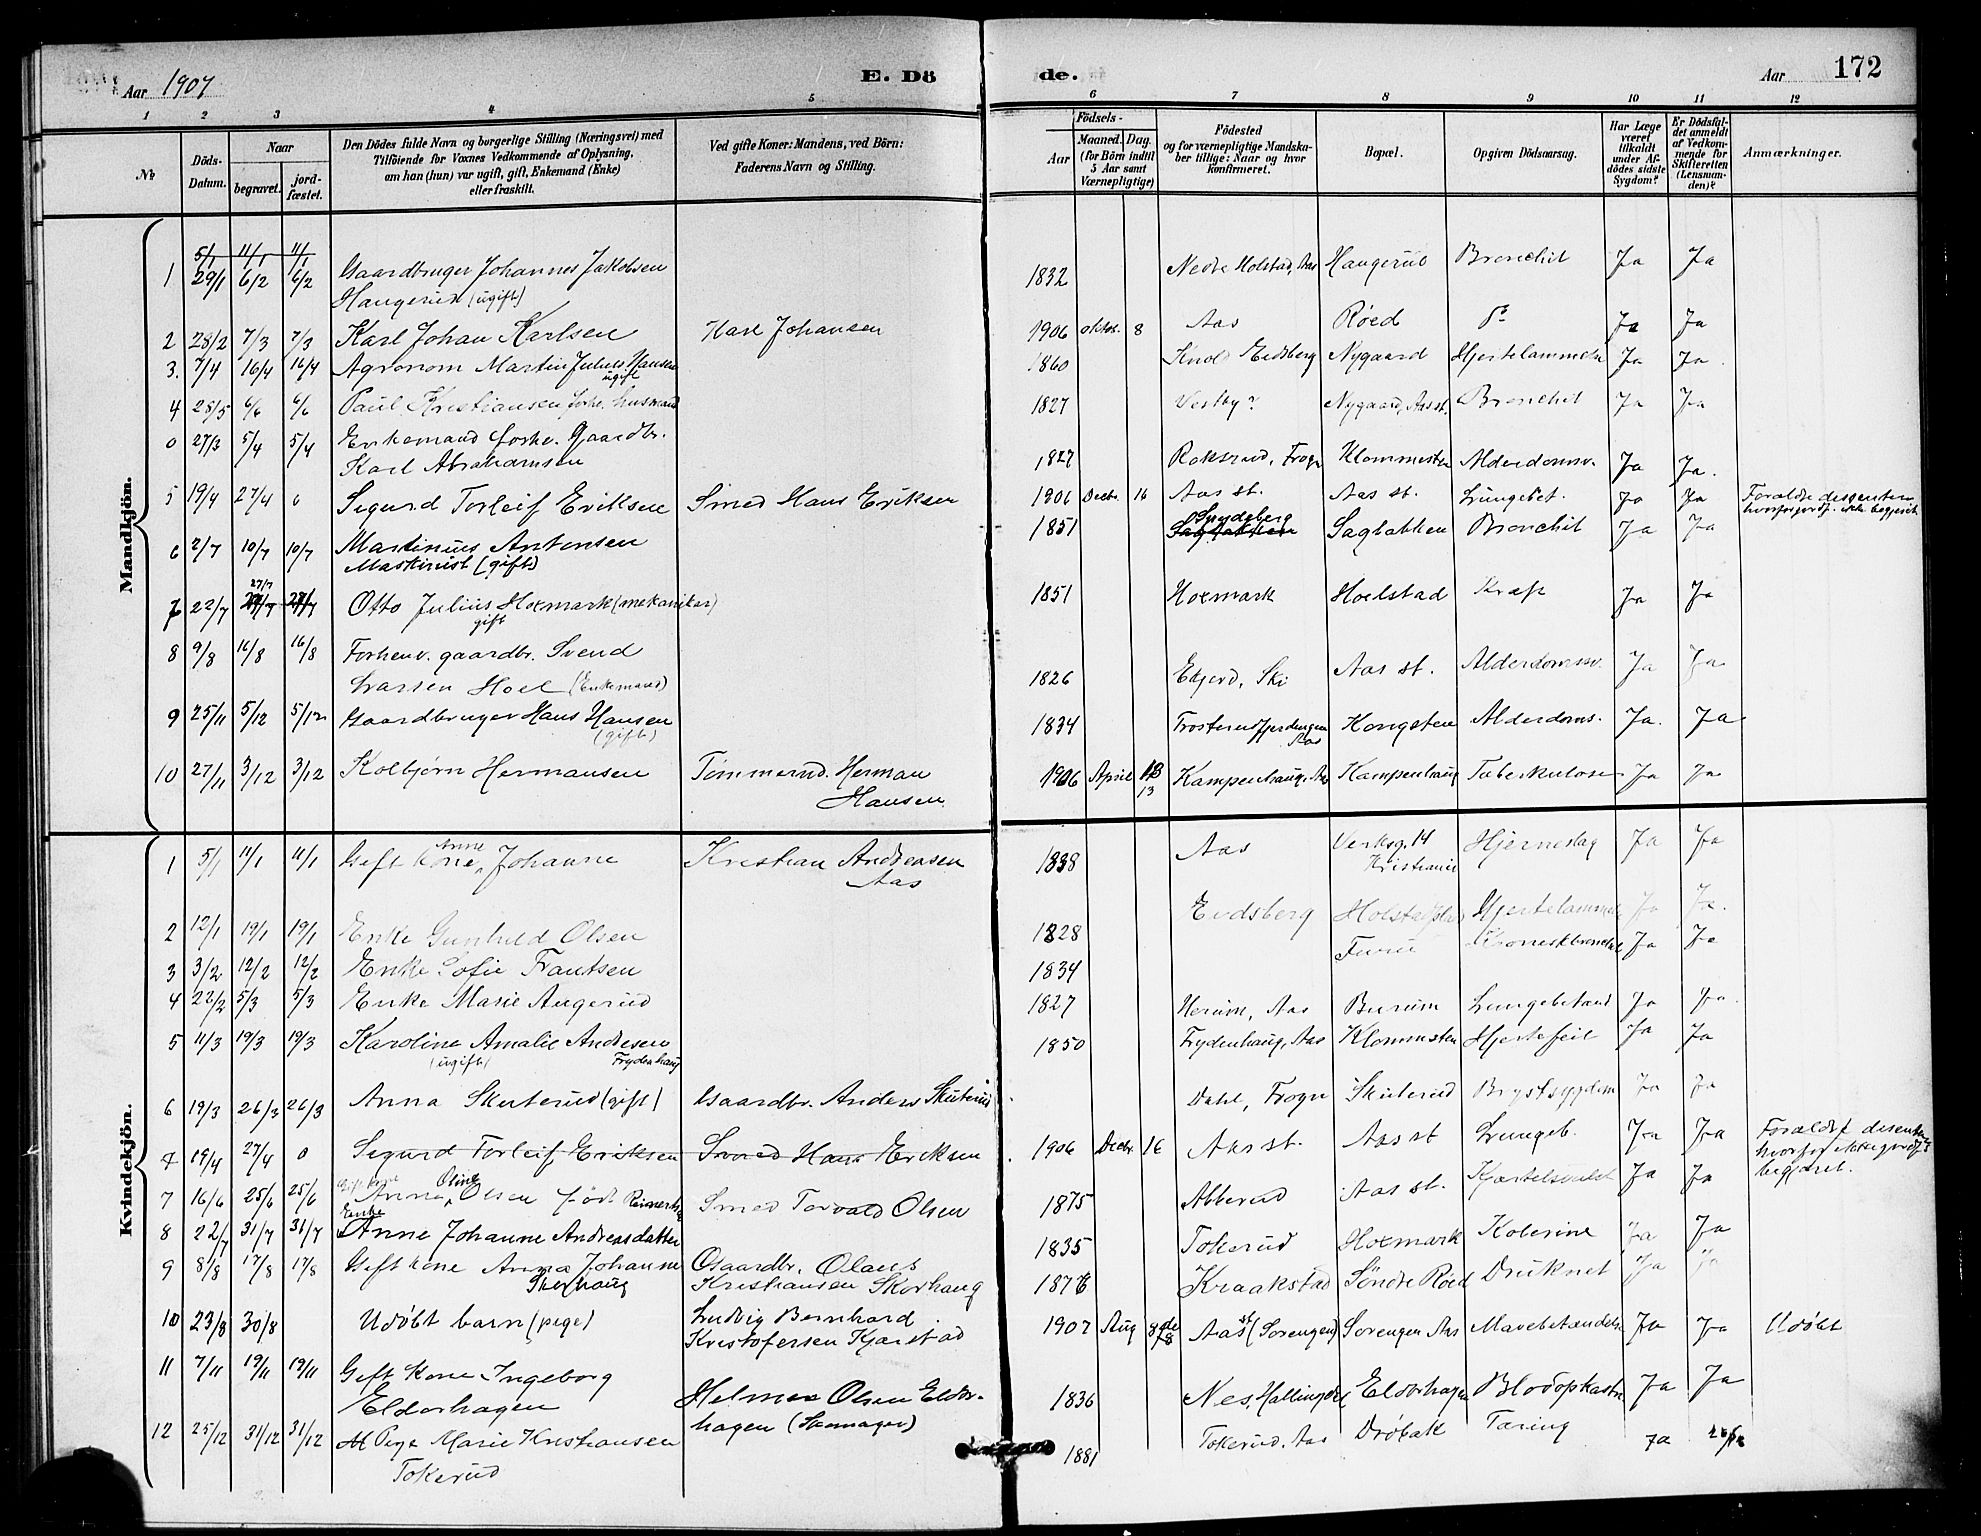 Aar 1907
E. Dö
de.
Aar
172
1 2 3 4 5 6 7 8 9 10 11 12
№
Döds-Datum.
Naar
begravet.
jord-fæstet.
Den Dödes fulde Navn og borgerlige Stilling (Næringsvei) med
Tilföiende for Voxnes Vedkommende af Oplysning,
om han (hun) var ugift, gift, Enkemand (Enke)
eller fraskilt.
Ved gifte Koner: Mandens, ved Börn:
Faderens Navn og Stilling.
Födsels-
Aar
Maaned. Dag.
(for Börn indtil
5 Aar samt
Værnepligtige)
Födested
og for værnepligtige Mandska-
ber tillige: Naar og hvor
konfirmeret.
Bopæl.
Opgiven Dödsaarsag.
Har Læge
været
tilkaldt
under Af-
dödes sidste
Sygdom?
Er Dödsfal-
det anmeldt
af Vedkom-
mende for
Skifteretten
(Lensman-
den)?
Anmærkninger.
Mandkjön.
5/1 11/1 11/1
1 29/1 6/2 6/2 Gaardbruger Johannes Jakobsen 1832 Nedre Holstad, Aas Haugerud Bronchit Ja Ja
Haugerud (ugift)
2 28/2 7/3 7/3 Karl Johan Karlsen Karl Johansen 1906 oktob. 8 Aas Röed do Ja Ja
3. 7/4 16/4 16/4 Agronom Martin Julius Hansen 1860 Eidsberg Nygaard Hjertelammelse Ja Ja
ugift
4 28/5 6/6 6/6 Paul Kristiansen forhv. husmand 1827 Vestby? Nygaard, Aas st. Bronchit Ja Ja
0 27/3 5/4 5/4 Enkemand forhv. Gaardbr.
Karl Abrahamsen 1827 Frogn Klommesten Alderdomsv. Ja Ja.
5 19/4 27/4 0 Sigurd Torleif Eriksen Smed Hans Eriksen 1906 Decbr. 16 Aas st. Aas st. Lungebet. Ja Ja Forældre dissentere
hvorfor jordf. ikke begjæret
6 2/7 10/7 10/7 Martinius Antonsen 1851 Spydeberg Sagbakken Bronchit Ja Ja
Maskinist (gift) Sagbakken
27/7
7 22/7 27/7 27/7 Otto Julius Hoxmark (mekaniker) 1851 Hoxmark Hoelstad Kræft Ja Ja
gift
8 9/8 16/8 16/8 Forhenv. gaardbr. Svend
Larssen Hoel (Enkemand) 1826 Ski Aas st. Alderdomsv. Ja Ja
9 25/11 5/12 5/12 Gaardbruger Hans Hansen 1834 Trosterudfjerdingen Kongsten Alderdoms. Ja. Ja
(gift) Aas
10 27/11 3/12 3/12 Kolbjørn Hermansen Tømmermd. Herman 1906 April 13 Kampenhaug, Aas Kampenhaug Tuberkulose Ja Ja
Hansen 13
Kvindekjön.
1 5/1 11/1 11/1 Gift kone Anne Johanne Kristian Andersen 1838 Aas Verksg. 14 Hjerneslag Ja Ja
Aas Kristiania
2 12/1 19/1 19/1 Enke Gunhild Olsen 1828 Eidsberg Hjertelammelse Ja Ja.
3 3/2 12/2 12/2 Enke Sofie Frantsen 1834 Furu Kronisk bronchit Ja Ja
4 22/2 5/3 5/3 Enke Marie Augerud 1827 Herum, Aas Burum Lungebetænd Ja Ja.
5 11/3 19/3 19/3 Karoline Amalie Andresen 1850 Frydenhaug, Aas Klommesten Hjertefeil Ja Ja
(ugift) Frydenhaug
6 19/3 26/3 26/3 Anna Skuterud (gift) Gaardbr. Anders Skuterud Dahl, Frogn Skuterud Brystsygdom Ja Ja
7 19/4 27/4 0 Sigurd Torleif Eriksen Smed Hans Eriksen 1906 Decbr. 16 Aas st. Aas st Lungeb. Ja Ja Forældre dissentere
hvorfor ikke jordf.
begjæret.
7 16/6 25/6 25/6 Gift kone Anna Oline Olsen født Smed Torvald Olsen 1875 Abberud Aas st. Ja Ja
8 22/7 31/7 31/7 Enke Anne Johanne Andreasdatter 1835 Tokerud Hoxmark Kolerine Ja Ja
9 8/8 17/8 17/8 Gift kone Anna Johanne Gaardbr. Olaus 1876 Kraakstad Söndre Röed Druknet Ja Ja
Skorhaug Kristiansen Skorhaug
10 23/8 30/8 Udöbt barn (pige) Ludvig Bernhard 1907 Aug 8de Aas st (Sorengen) Sorengen Aas Mavebetændelse Ja Ja Udöbt
Kristofersen Kjærstad
11 7/11 19/11 19/11 Gift kone Ingeborg
Eldorhagen Helmer Olsen Eldor- 1836 Nes, Hallingdal Eldorhagen Blodopkastn Ja Ja
hagen (Skomager)
12 25/12 31/12 31/12 Pige Marie Kristiansen 1881 Tokerud, Aas Drøbak Tæring Ja
Tokerud